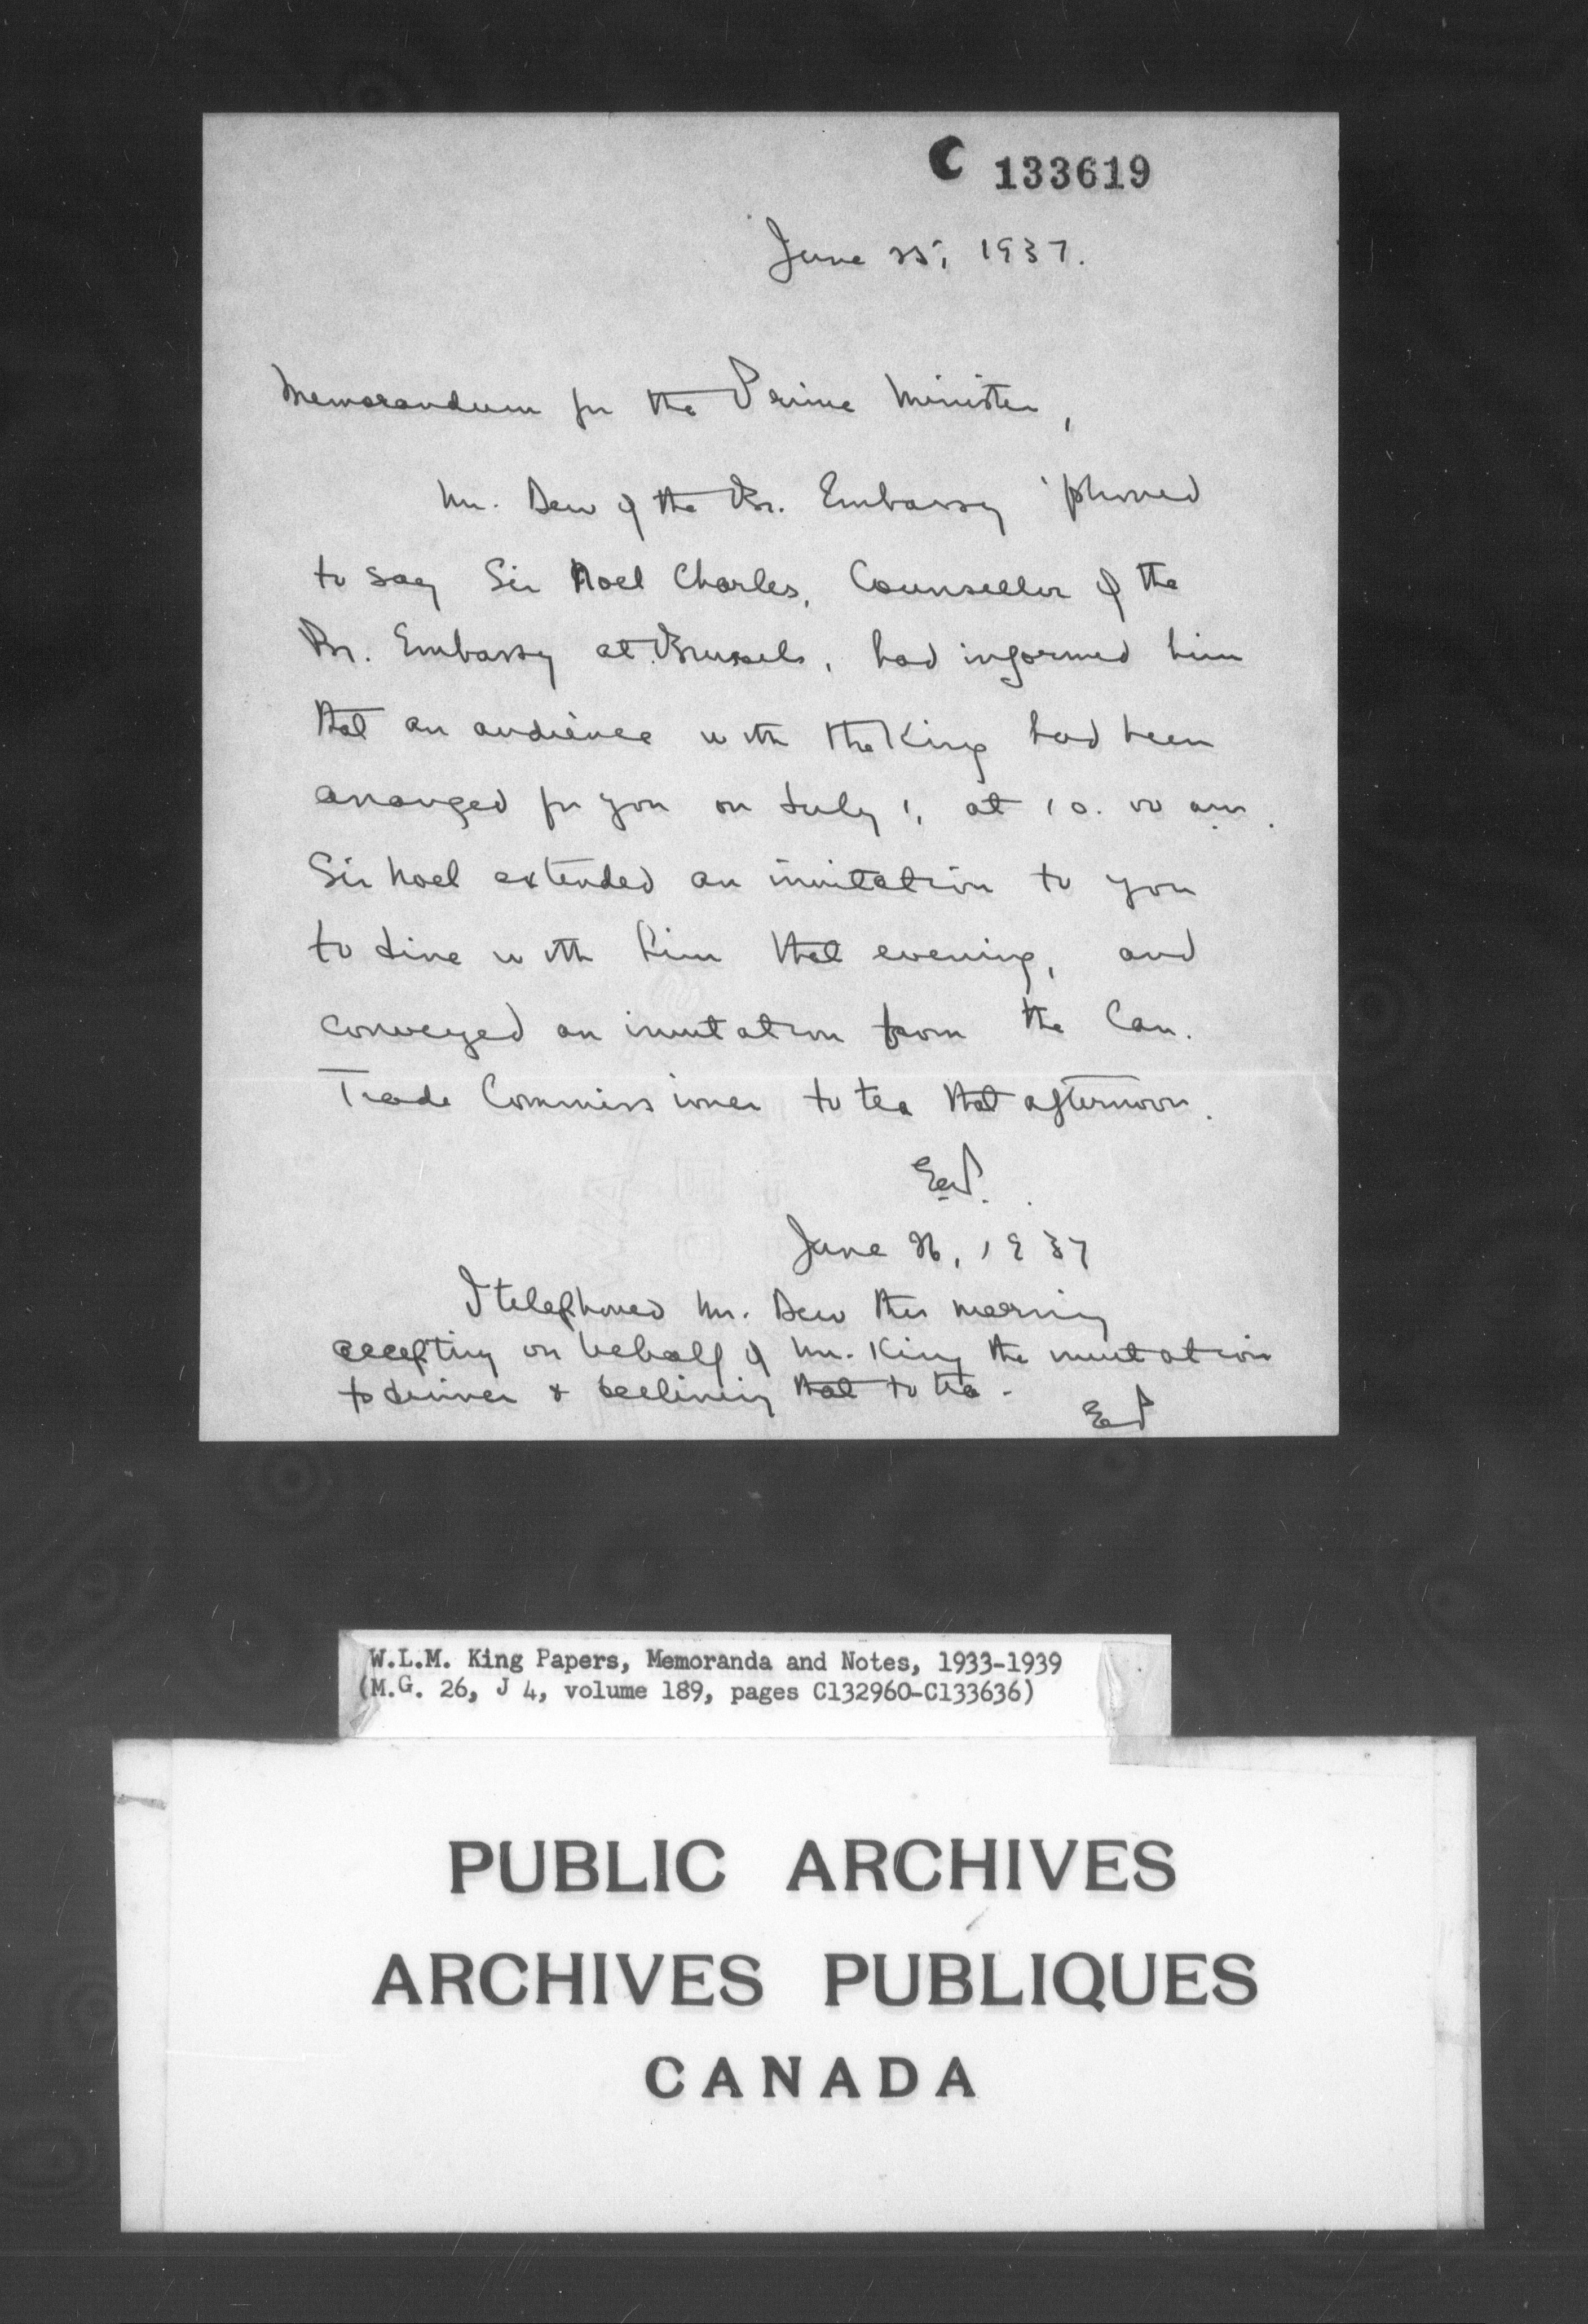 C 133619
June 25, 1937.
Memorandum for the Prime Minister,
Mr. Dew of the Br. Embassy 'phoned
to say Sir Noel Charles, Counsellor of the
Br. Embassy at Brussels, had informed him
that an audience with the King had been
arranged for you on July 1, at 10.00 am.
Sir Noel extended an invitation to you
to dine with him that evening, and
conveyed an invitation from the Can.
Trade Commissioner to tea that afternoon.
June 26, 1937
I telephoned Mr. Dew this morning
accepting on behalf of Mr. King the invitation
to dinner & declining that to tea.
W.L.M. King Papers, Memoranda and Notes, 1933-1939
(M.G. 26, J 4, volume 189, pages C132960-C133636)
PUBLIC ARCHIVES
ARCHIVES PUBLIQUES
CANADA